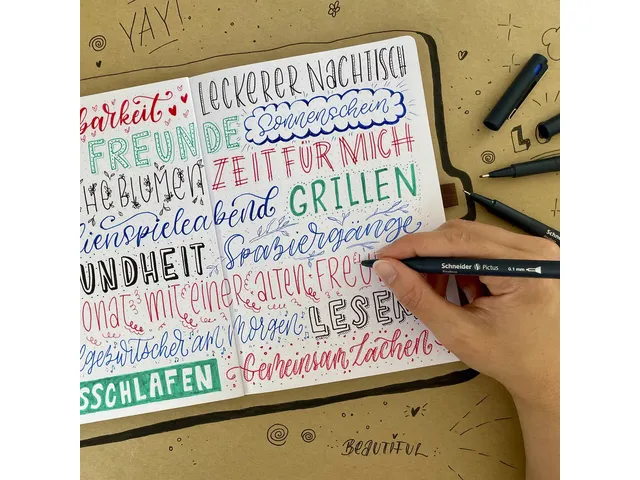 YAY!
LECKERER NACHTISCH
barkeit Sonnenschein
FREUNDE
ZEIT FÜR MICH
HE BLUMEN
GRILLEN
ienspieleabend
Spaziergänge
UNDHEIT
onat mit einer alten FREU
Schneider Pictus 0.1 mm
LESEN
lgezwitscher am Morgen
Gemeinsam Lachen
SSCHLAFEN
BEAUTIFUL